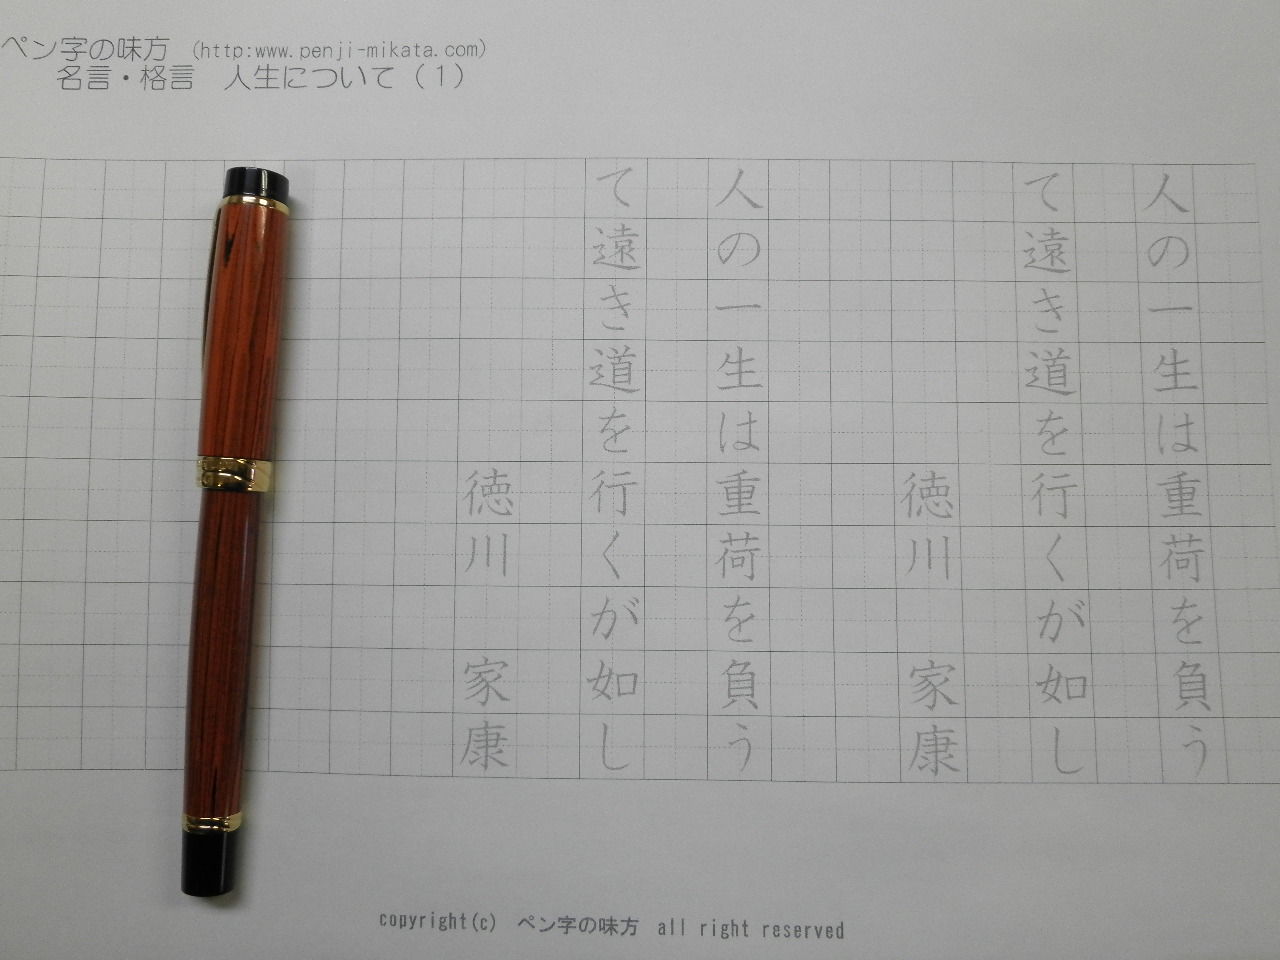 ペン字の味方 (http:www.penji-mikata.com)
名言・格言 人生について（1）
人の一生は重荷を負う
て遠き道を行くが如し
徳川 家康
人の一生は重荷を負う
て遠き道を行くが如し
徳川 家康
copyright(c) ペン字の味方 all right reserved